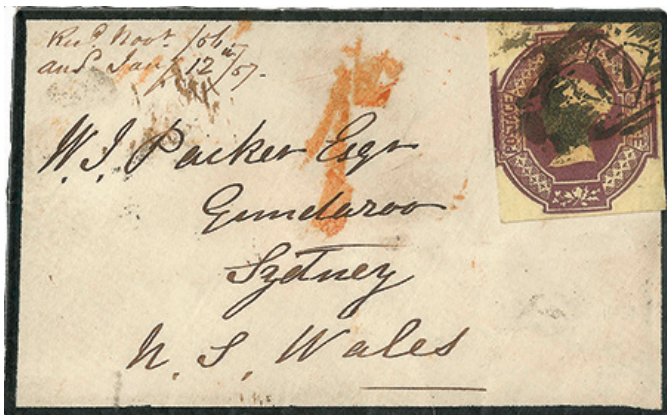 Recd Novr /56
ansd Jany 12th/57.
W. J. Packer Esqr
Gundaroo
Sydney
N. S. Wales
POSTAGE